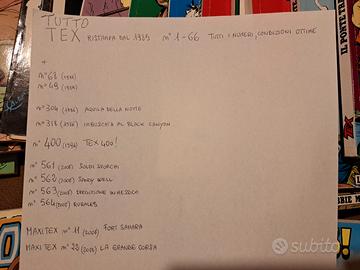 TUTTO
TEX RISTAMPA DAL 1985 n° 1-66 TUTTI I NUMERI, CONDIZIONI OTTIME
+
n° 68
n° 49
n° 304 AQUILA DELLA NOTTE
n° 318 IMBOSCATA AL BLACK CANYON
n° 400 (1994) TEX 400!
n° 561 (2007) SOLDI SPORCHI
n° 562 (2007) SANDY WELL
n° 563 (2007) SPEDIZIONE IN MESSICO
n° 564 (2007) RURALES
MAXI TEX n° 11 (2007) FORT SAHARA
MAXI TEX n° 22 LA GRANDE CORSA
subito